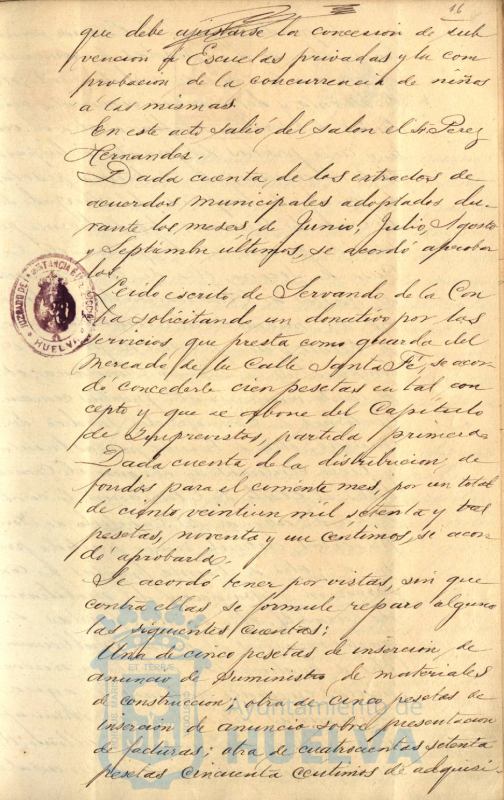 16
que debe ajustarse la concesion de sub
vención á Escuelas privadas y la com
probacion de la concurrencia de niños
a las mismas.
En este acto salió del salon el Sr Perez
Hernandez.
Dada cuenta de los extractos de
acuerdos municipales adoptados du-
rante los meses de Junio, Julio, Agosto
y Septiembre ultimos, se acordó aprobar
los.
Leido escrito de Servando de la Con
cha solicitando un donativo por los
servicios, que presta como guarda del
Mercado de la Calle Santa Fé, se acor
dó concederle cien pesetas en tal con
cepto y que se abone del Capítulo
de Imprevistos, partida primera.
Dada cuenta de la distribucion de
fondos para el corriente mes, por un total
de ciento veintiun mil setenta y tres
pesetas, noventa y un centimos, se acor
dó aprobarla.
Se acordó tener por vistas, sin que
contra ellas se formule reparo alguno
las siguientes cuentas:
Una de cinco pesetas de insercion de
anuncio de suministro de materiales
de construccion; otra de cinco pesetas de
insercion de anuncio sobre presentacion
de facturas; otra de cuatrocientas setenta
pesetas cincuenta centimos de adquisi-
JUZGADO DE 1ª INSTANCIA E INSTRUCCION
HUELVA
ET TERRÆ
Ayuntamiento de
HUELVA